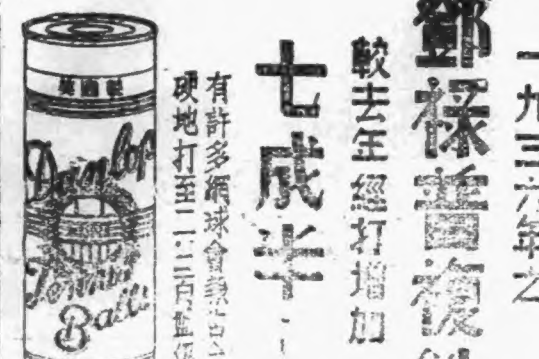 一九三六年之
鄧祿普復
較去年經打增加
七成半
有許多網球會
硬地打至二三百
英國製
Dunlop
Tennis
Balls